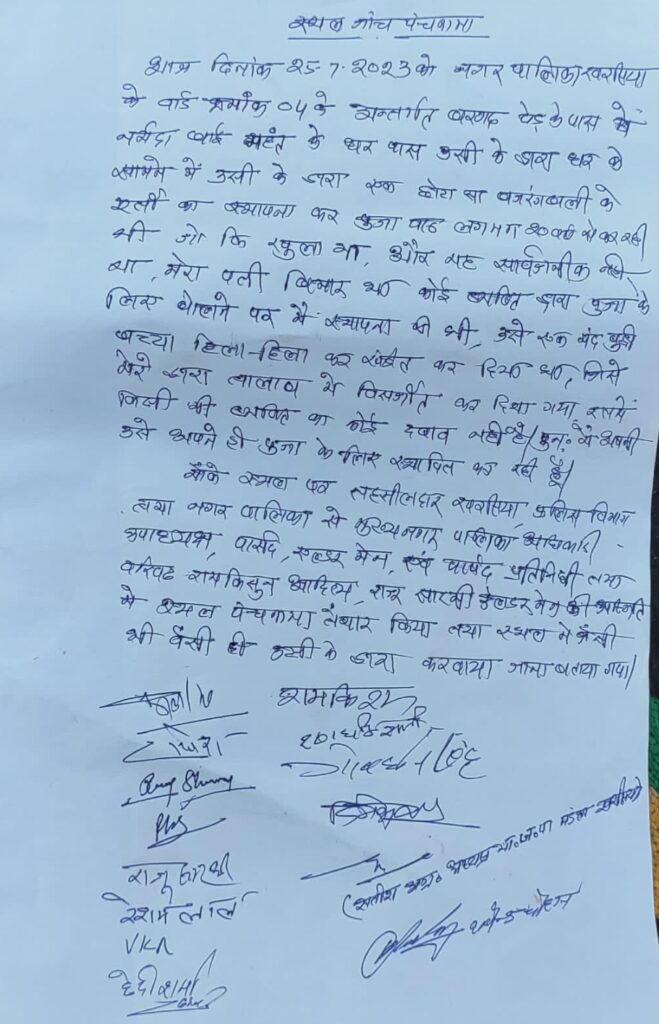 स्थल जांच पंचनामा
आज दिनांक 25-7-2023 को नगर पालिका खरसिया
के वार्ड क्रमांक 04 के अन्तर्गत बरगद पेड़ के पास में
नर्मदा बाई महंत के घर पास उसी के द्वारा घर के
सामने में उसी के द्वारा एक छोटा सा बजरंगबली के
मूर्ती का स्थापना कर पुजा पाठ लगभग 20 वर्षो से कर रही
थी जो कि खुला था, और यह सार्वजनीक नही
था, मेरा पती बिमार था कोई व्यक्ति द्वारा पुजा के
लिए बोलने पर मैं स्थापना की थी, उसे एक मंद बुद्धी
बच्चा हिला-हिला कर खंडीत कर दिया था, जिसे
मेरे द्वारा तालाब मे विसर्जीत कर दिया गया, इसमें
किसी की व्यक्ति का कोई दबाव नहीं है। पुनः मैं अपनी
उसे अपने ही पुजा के लिए स्थापित कर रही हूँ।
मौके स्थल पर तहसीलदार खरसिया, पुलिस विभाग
तथा नगर पालिका से मुख्य नगर पालिका अधिकारी
उपाध्यक्ष, पार्षद, एल्डर मेन, एवं पार्षद प्रतिनिधी तथा
वरिष्ठ रामकिसुन आदित्य, राजू सारथी एल्डर मेन की उपस्थिति
मे स्थल पंचनामा तैयार किया तथा स्थल मे जैसी
थी वैसी ही उसी के द्वारा करवाया जाना बताया गया।
रामकिशन
राजू सारथी
रेशम लाल
VKR